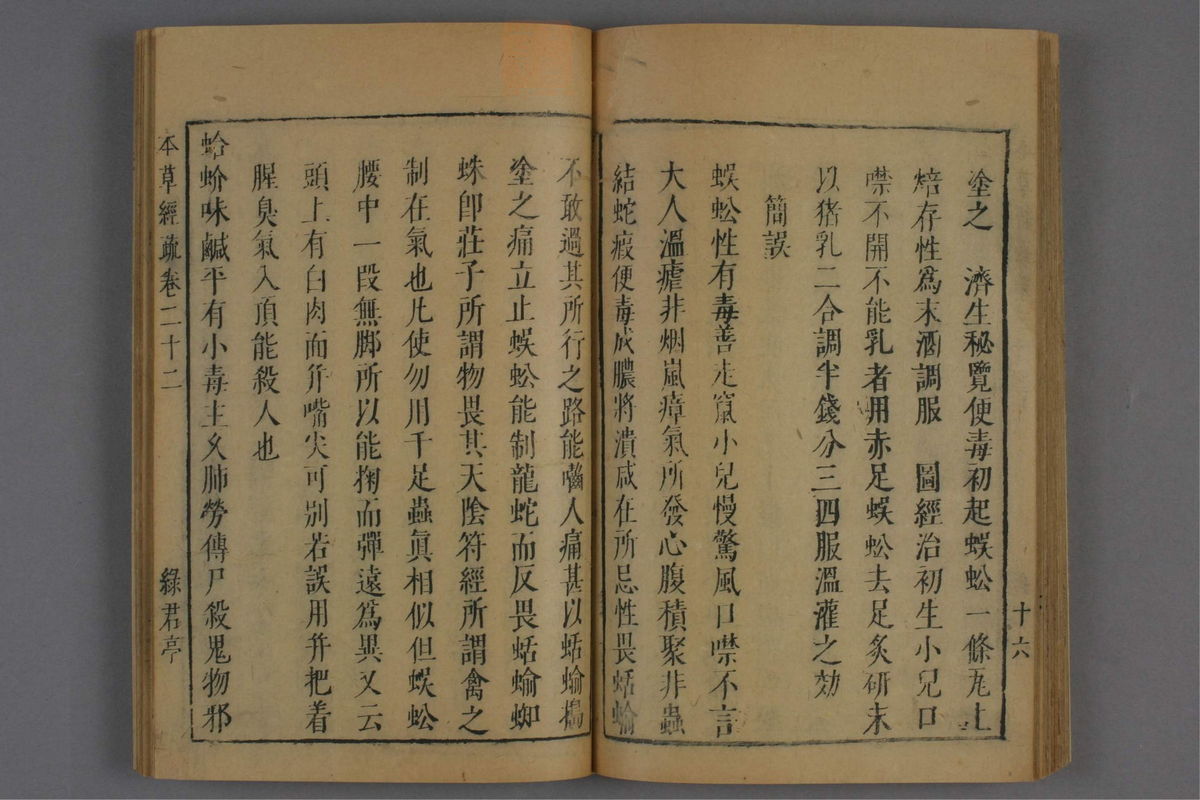 塗之　濟生秘覽便毒初起蜈蚣一條瓦上
焙存性爲末酒調服　圖經治初生小兒口
噤不開不能乳者用赤足蜈蚣去足炙研末
以猪乳二合調半錢分三四服溫灌之効
簡誤
蜈蚣性有毒善走竄小兒慢驚風口噤不言
大人溫瘧非烟嵐瘴氣所發心腹積聚非蟲
結蛇瘕便毒成膿將潰咸在所忌性畏蛞蝓
十六
不敢過其所行之路能囓人痛甚以蛞蝓搗
塗之痛立止蜈蚣能制龍蛇而反畏蛞蝓蜘
蛛卽莊子所謂物畏其天陰符經所謂禽之
制在氣也凢使勿用千足蟲眞相似但蜈蚣
腰中一段無脚所以能掬而彈遠爲異又云
頭上有白肉而幷嘴尖可别若誤用幷把着
腥臭氣入頂能殺人也
蛤蚧味鹹平有小毒主乆肺勞傳尸殺鬼物邪
本草經疏卷二十二
綠君亭